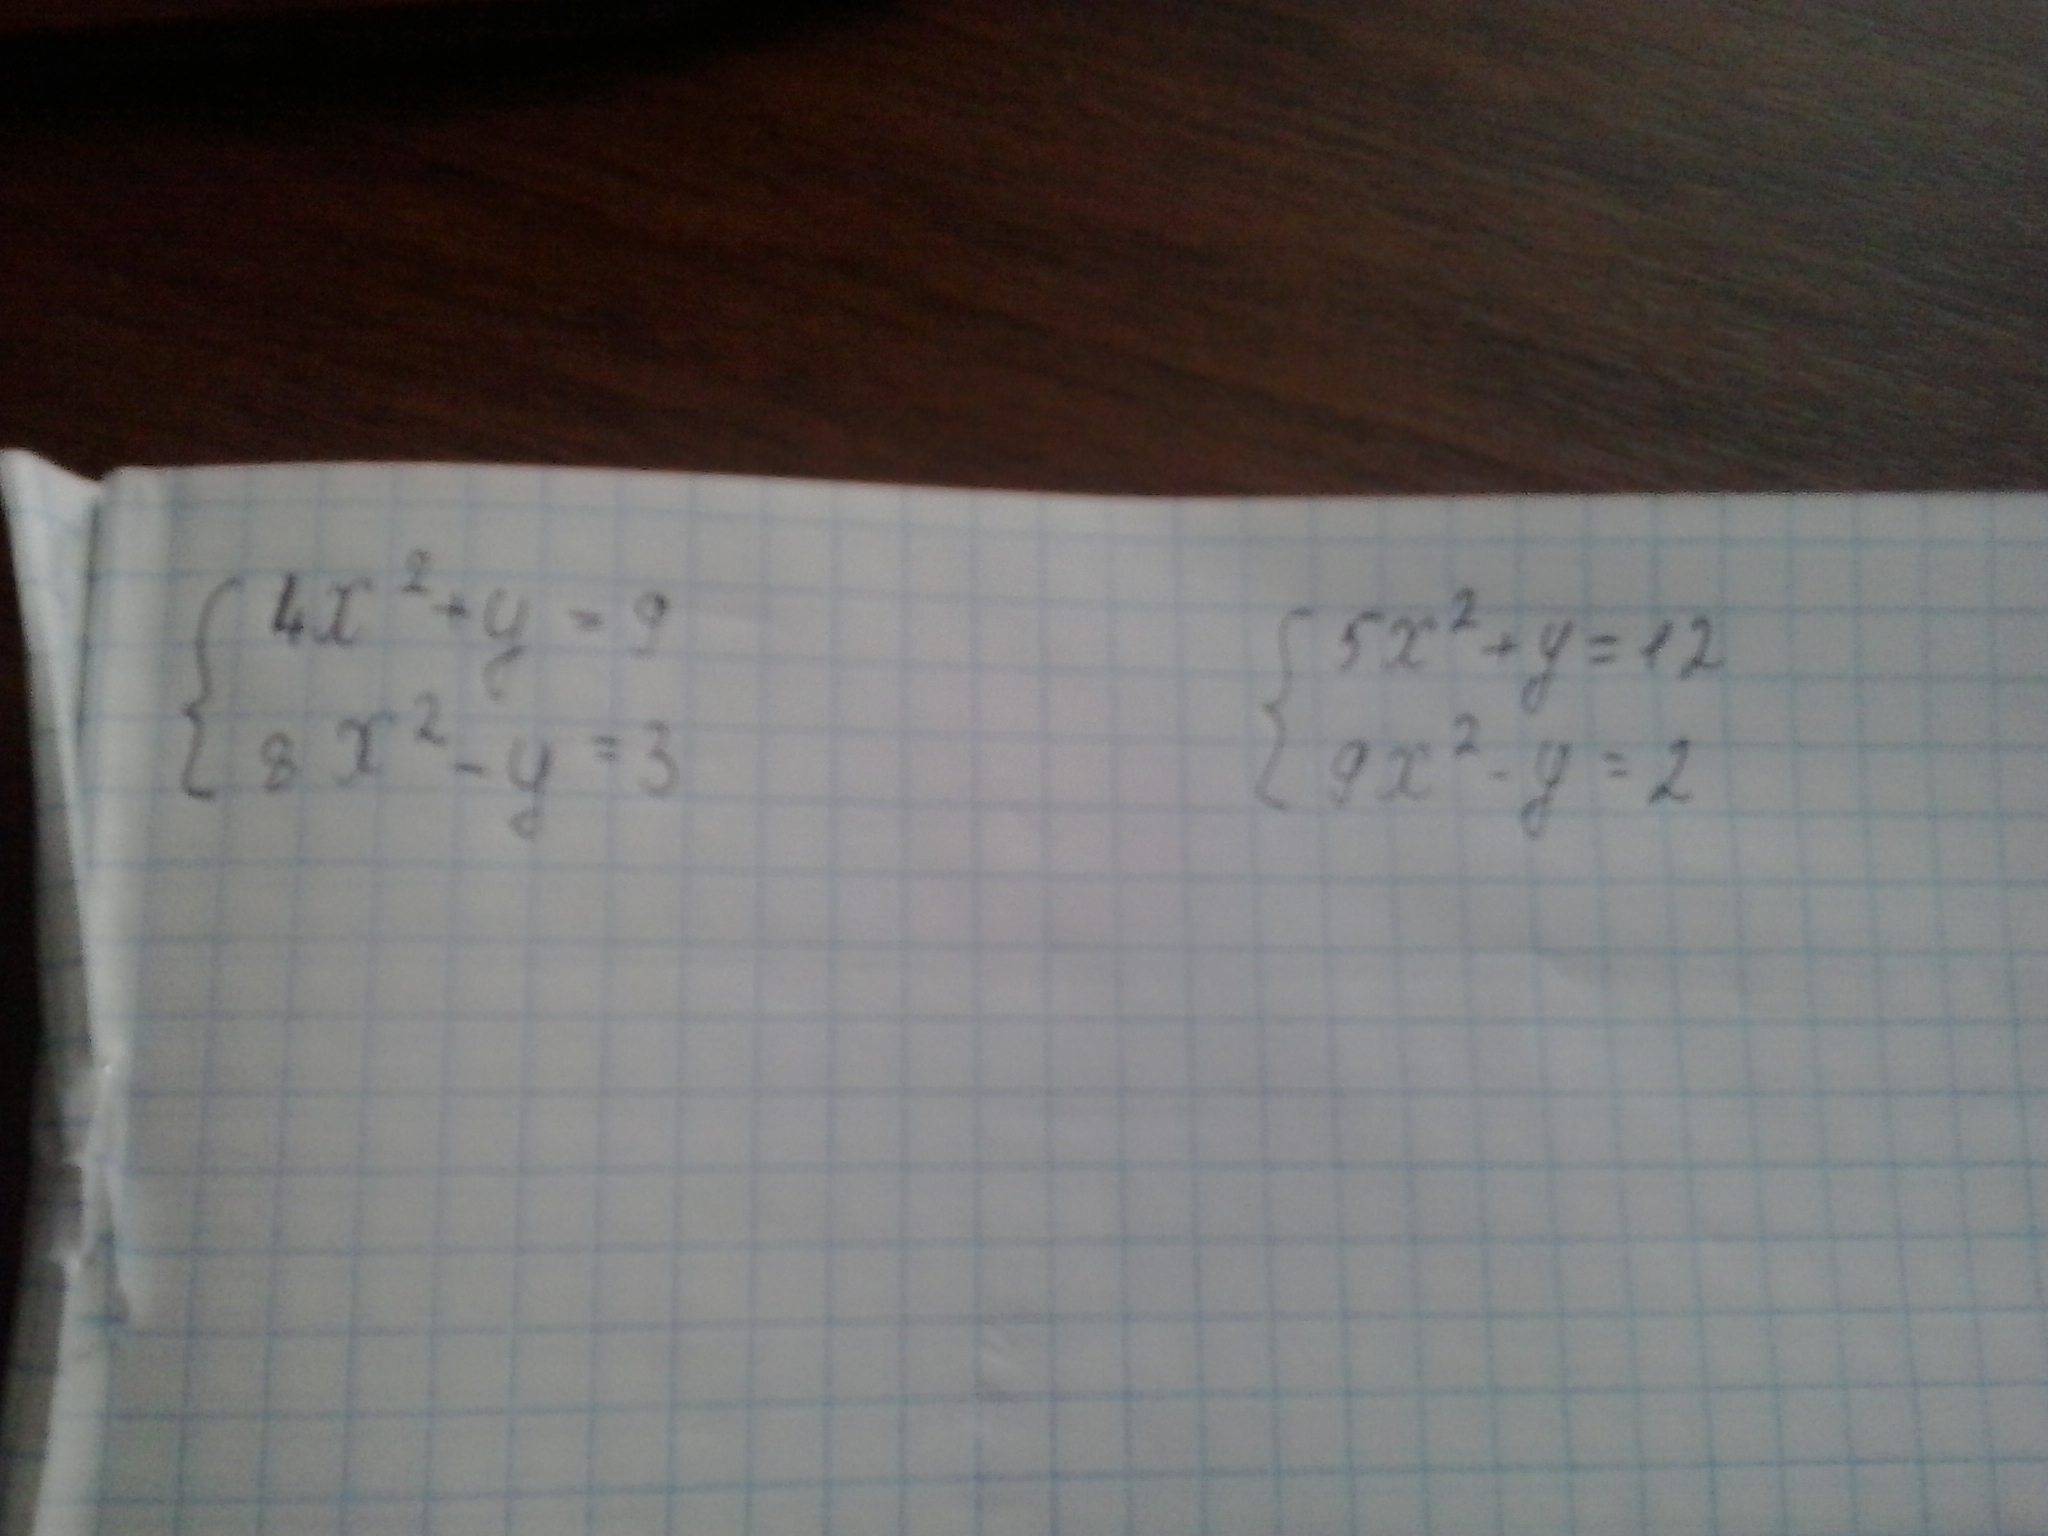 4x² + y = 9
8x² - y = 3
5x² + y = 12
9x² - y = 2